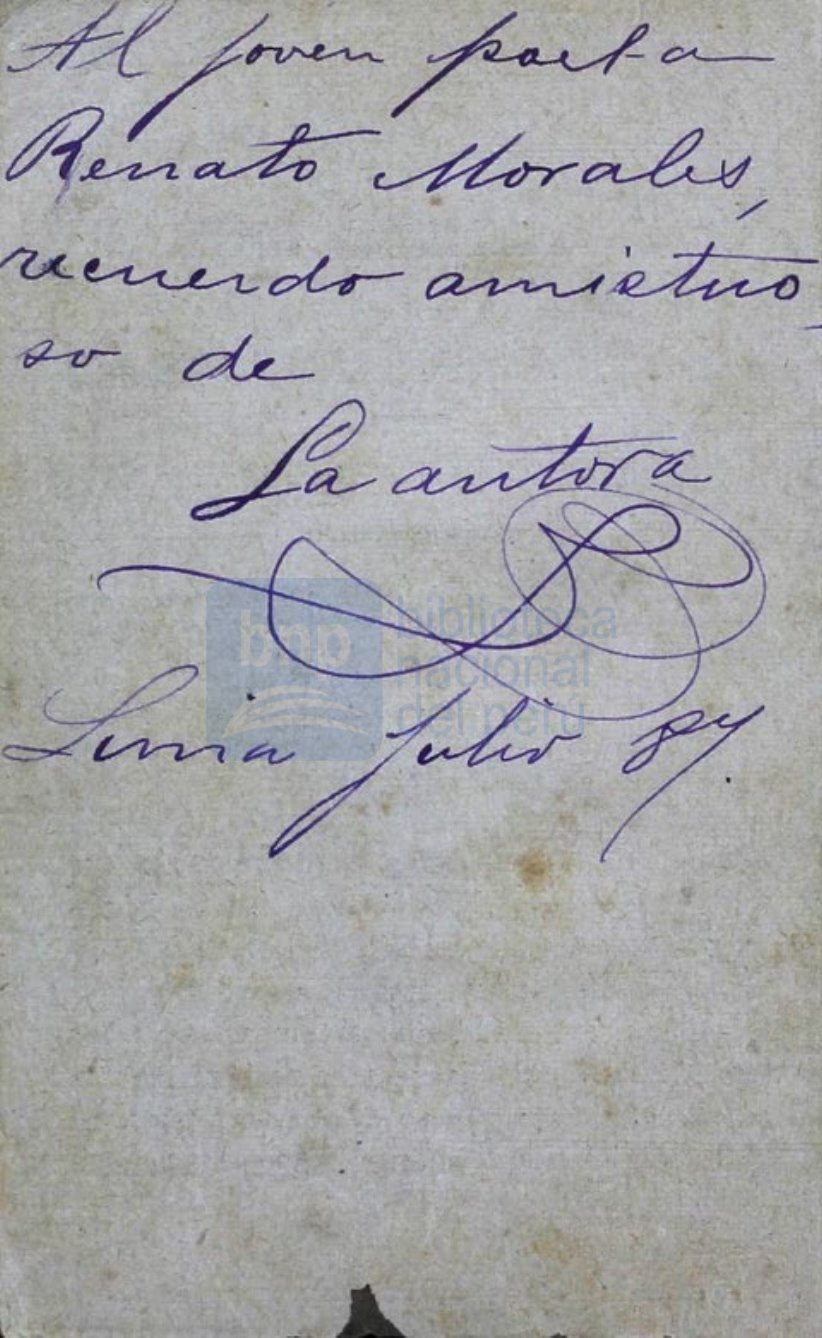 Al joven poeta
Renato Morales,
recuerdo amistuo
so de
La autora
bnp biblioteca
nacional
del perú
Lima Julio 87.